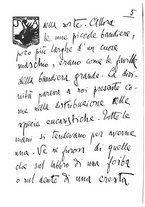 5
nella sorte. Allora
le mie piccole bandiere,
poco più larghe d'un cuore
maschio, erano come le favelle
della bandiera grande. La divi-
nità pareva a noi presente co-
me nella distribuzione delle
specie eucaristiche. Tutte le
mani si tendevano per averne
una. Ve ne furon di quelle
che sul labbro di una ferita
o sul dente di una cresta